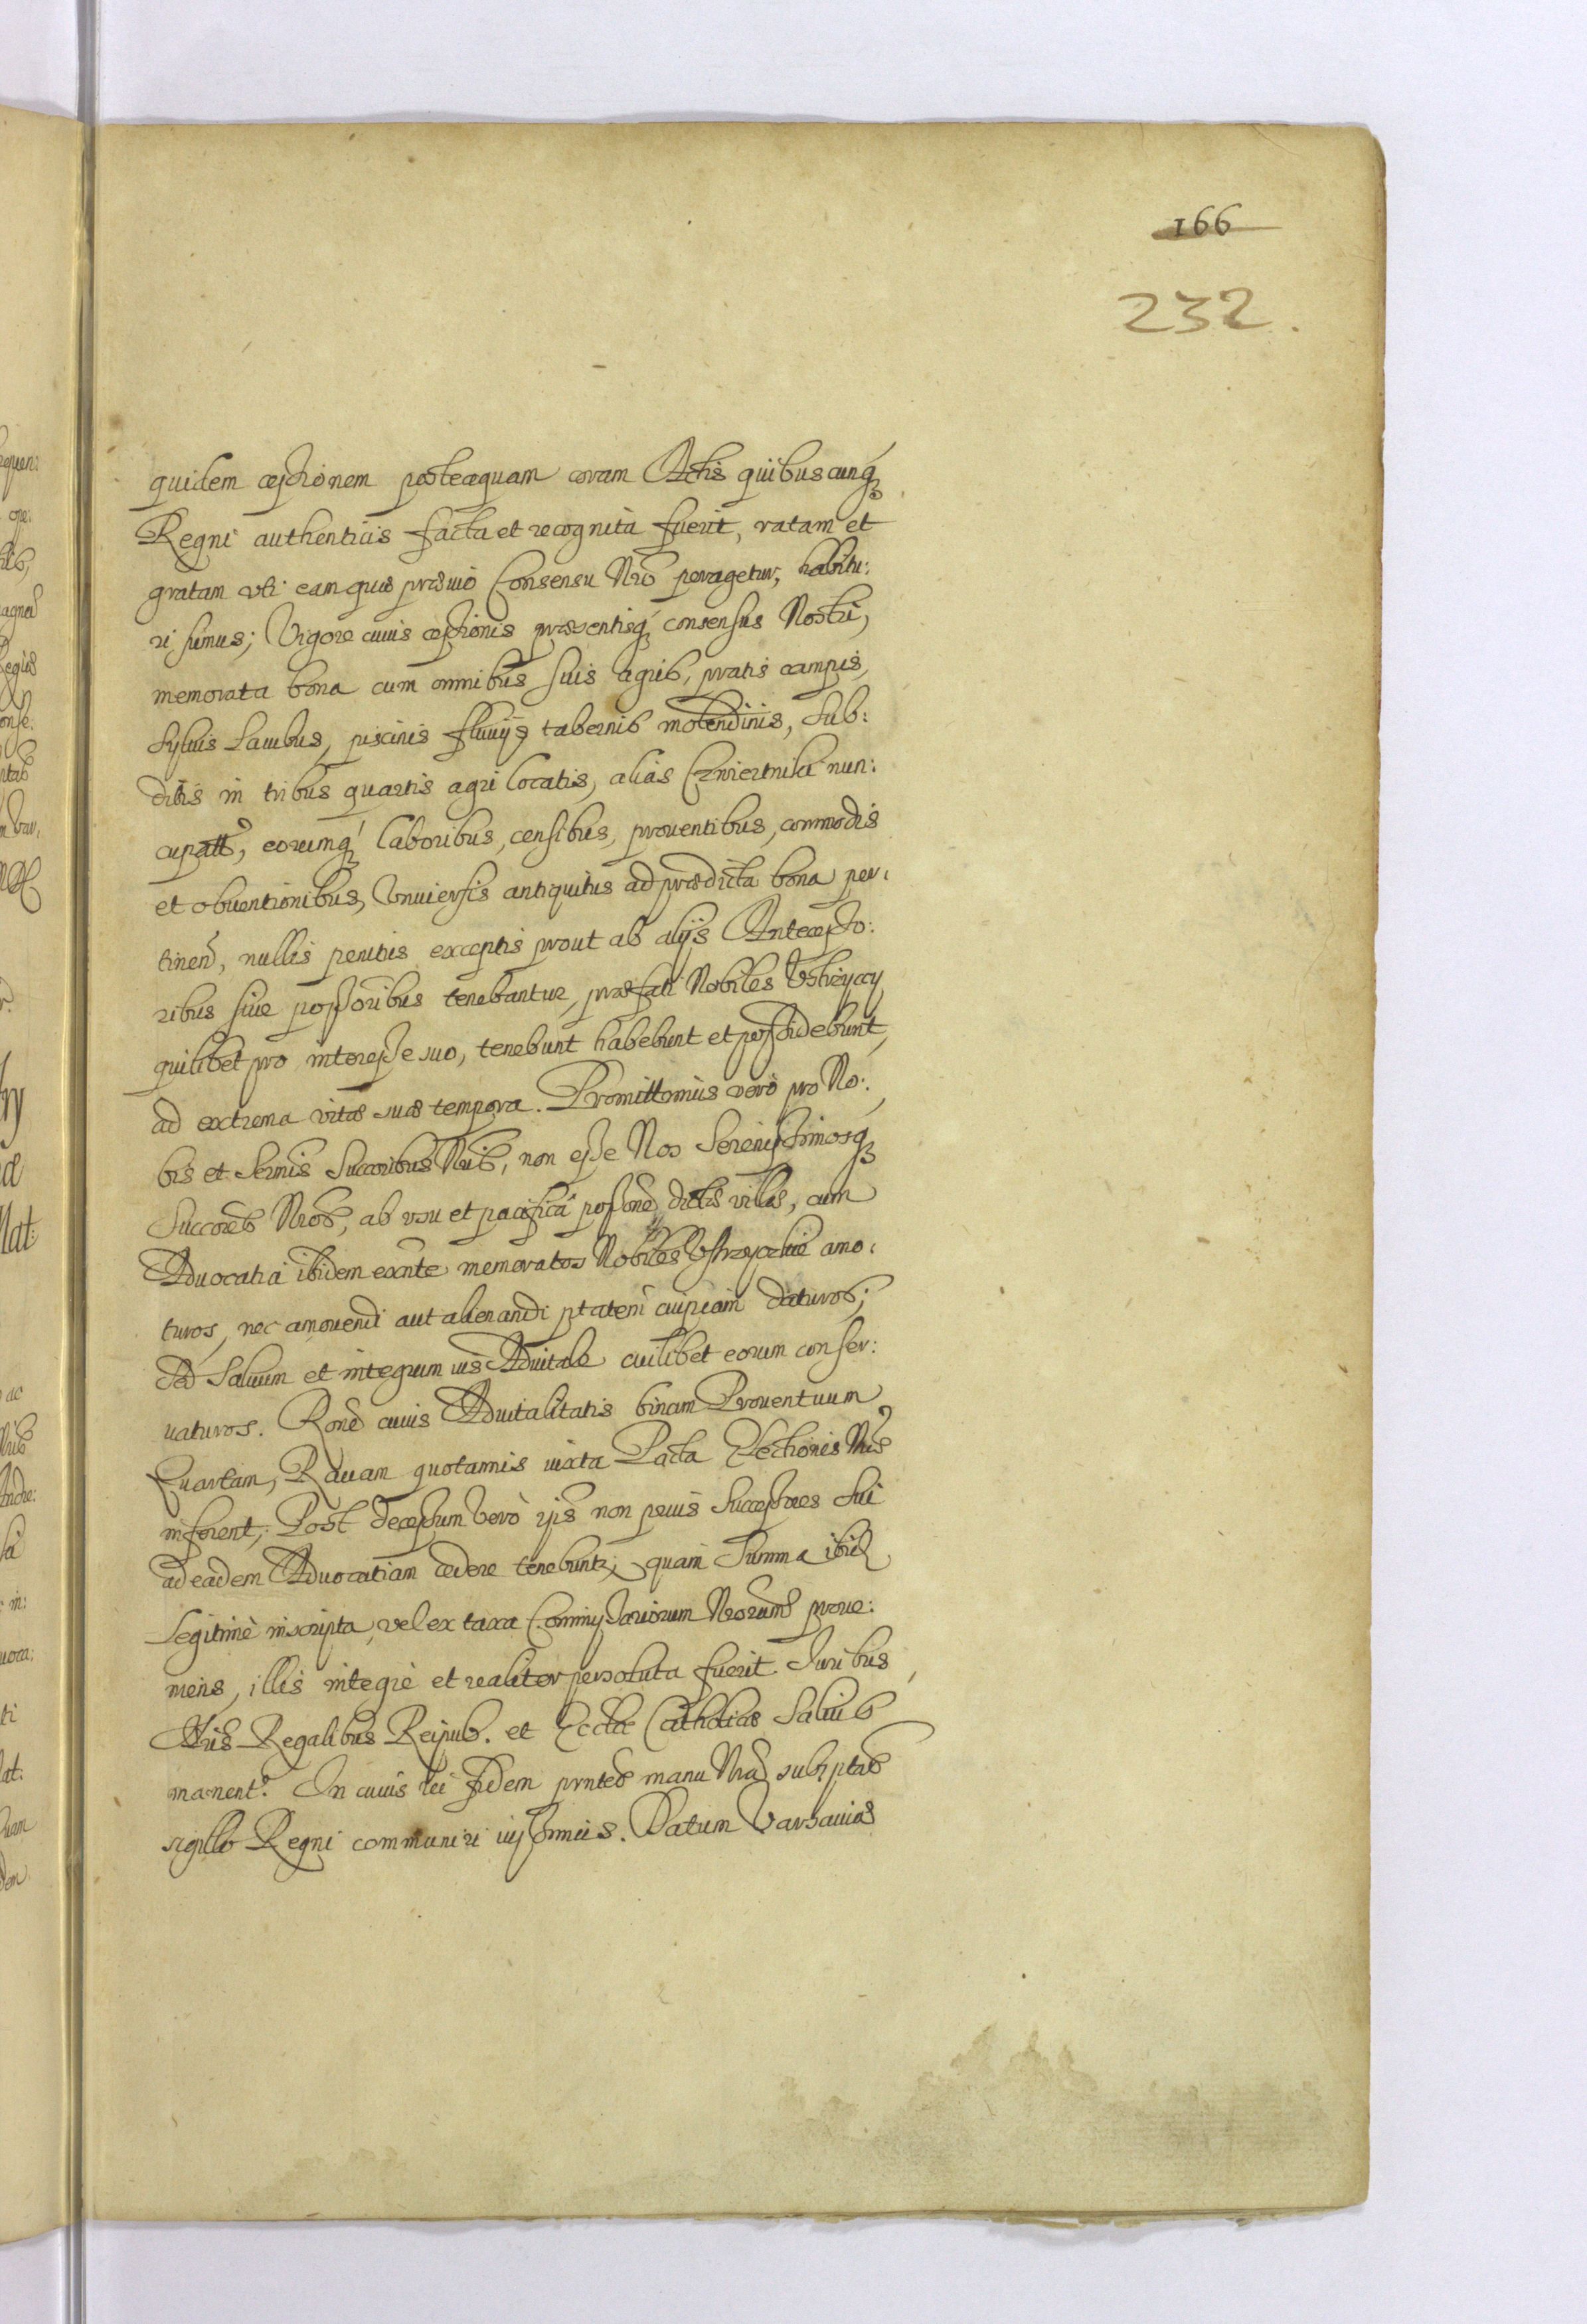 166
232.
quidem cessionem posteaquam coram Actis quibuscunq́
Regni authenticis facta et recognita fuerit, ratam et
gratam vti eam quae praeuio Consensu Nro peragetur, habitu:
ri sumus; Vigore cuius cessionis praesentisq́ consensus Nostri,
memorata bona cum omnibus suis agris, pratis campis,
Syluis Lacubus, piscinis fluuijs tabernis molendinis, Sub:
ditis in tribus quartis agri locatis, alias Czwiertnika nun:
cupatt, eorumq́ laboribus, censibus, prouentibus, commodis
et obuentionibus, Vniuersis antiquitus ad praedicta bona per:
tinen, nullis penitus exceptis prout ab alijs Antecesso:
ribus siue possoribus tenebantur, praefati Nobiles Vstrzyccy
quilibet pro interesse suo, tenebunt habebunt et possidebunt,
ad extrema vitae suae tempora. Promittimus vero pro No:
bis et Sermis Succoribus Nris, non esse Nos Serenissimosq́
Succores Nros, ab vsu et pacifica possone dictis villis, cum
Aduocatia ibidem exnte memoratos Nobiles Vstrzyckie amo:
turos, nec amouendi aut alienandi ptatem cuipiam daturos;
Sed Saluum et integrum ius Aduitale cuilibet eorum conser:
uaturos. Rone cuius Aduitalitatis binam Prouentuum
Quartam, Rauam quotannis iuxta Pacta Electionis Nrae
inferent; Post decessum vero ijs non prius Successores Sui
ad eadem Aduocatiam cedere tenebuntr, quam Summa ibid
Legitimè inscripta, vel ex taxa Commissariorum Nrorum proue:
niens, illis integrè et realiter persoluta fuerit. Iuribus
Nris Regalibus Reipub. et Ecclae Catholicae Saluis
manent. In cuius rei fidem pnntes manu Nra subsptas
sigillo Regni communiri iussimus. Datum Varsauiae